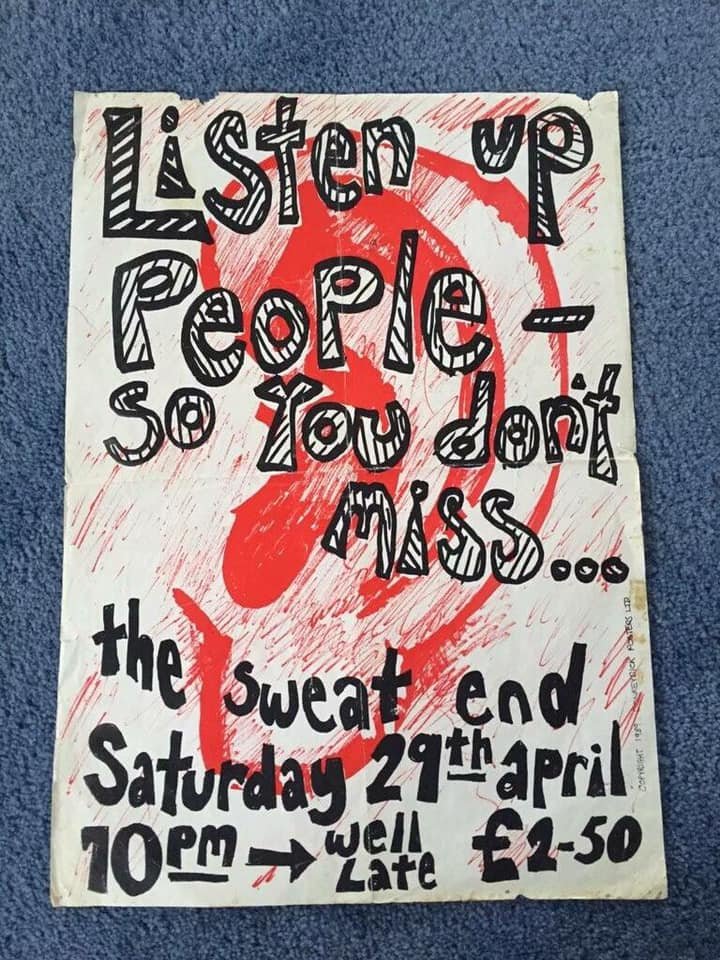 Listen up
People -
so You don't
miss...
the sweat end
Saturday 29th april
10pm → well
Late £2-50
COPYRIGHT 1989 POSTERS LTD.